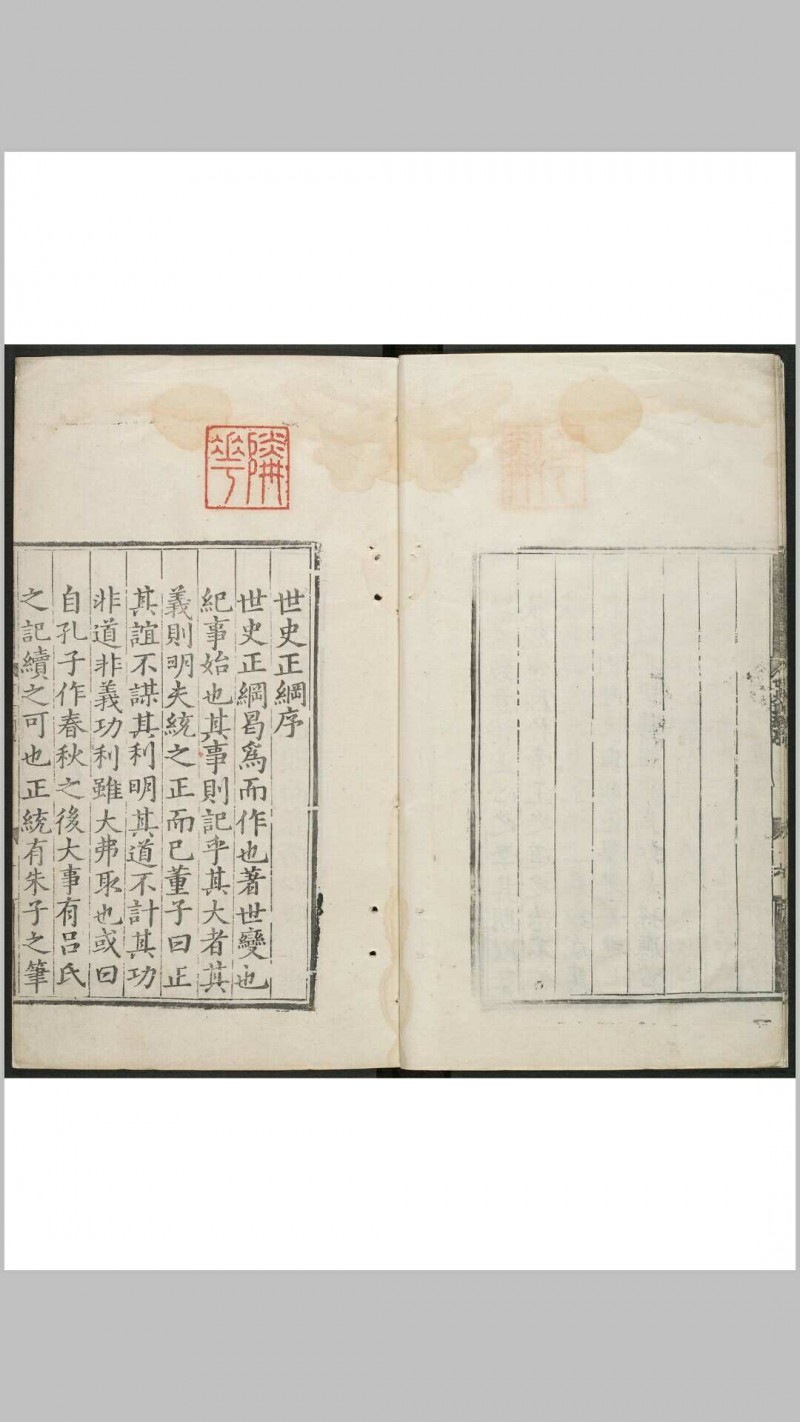 世史正綱序
世史正綱曷爲而作也著世變也
紀事始也其事則記乎其大者其
義則明夫統之正而已董子曰正
其誼不謀其利明其道不計其功
非道非義功利雖大弗取也或曰
自孔子作春秋之後大事有呂氏
之記續之可也正統有朱子之筆